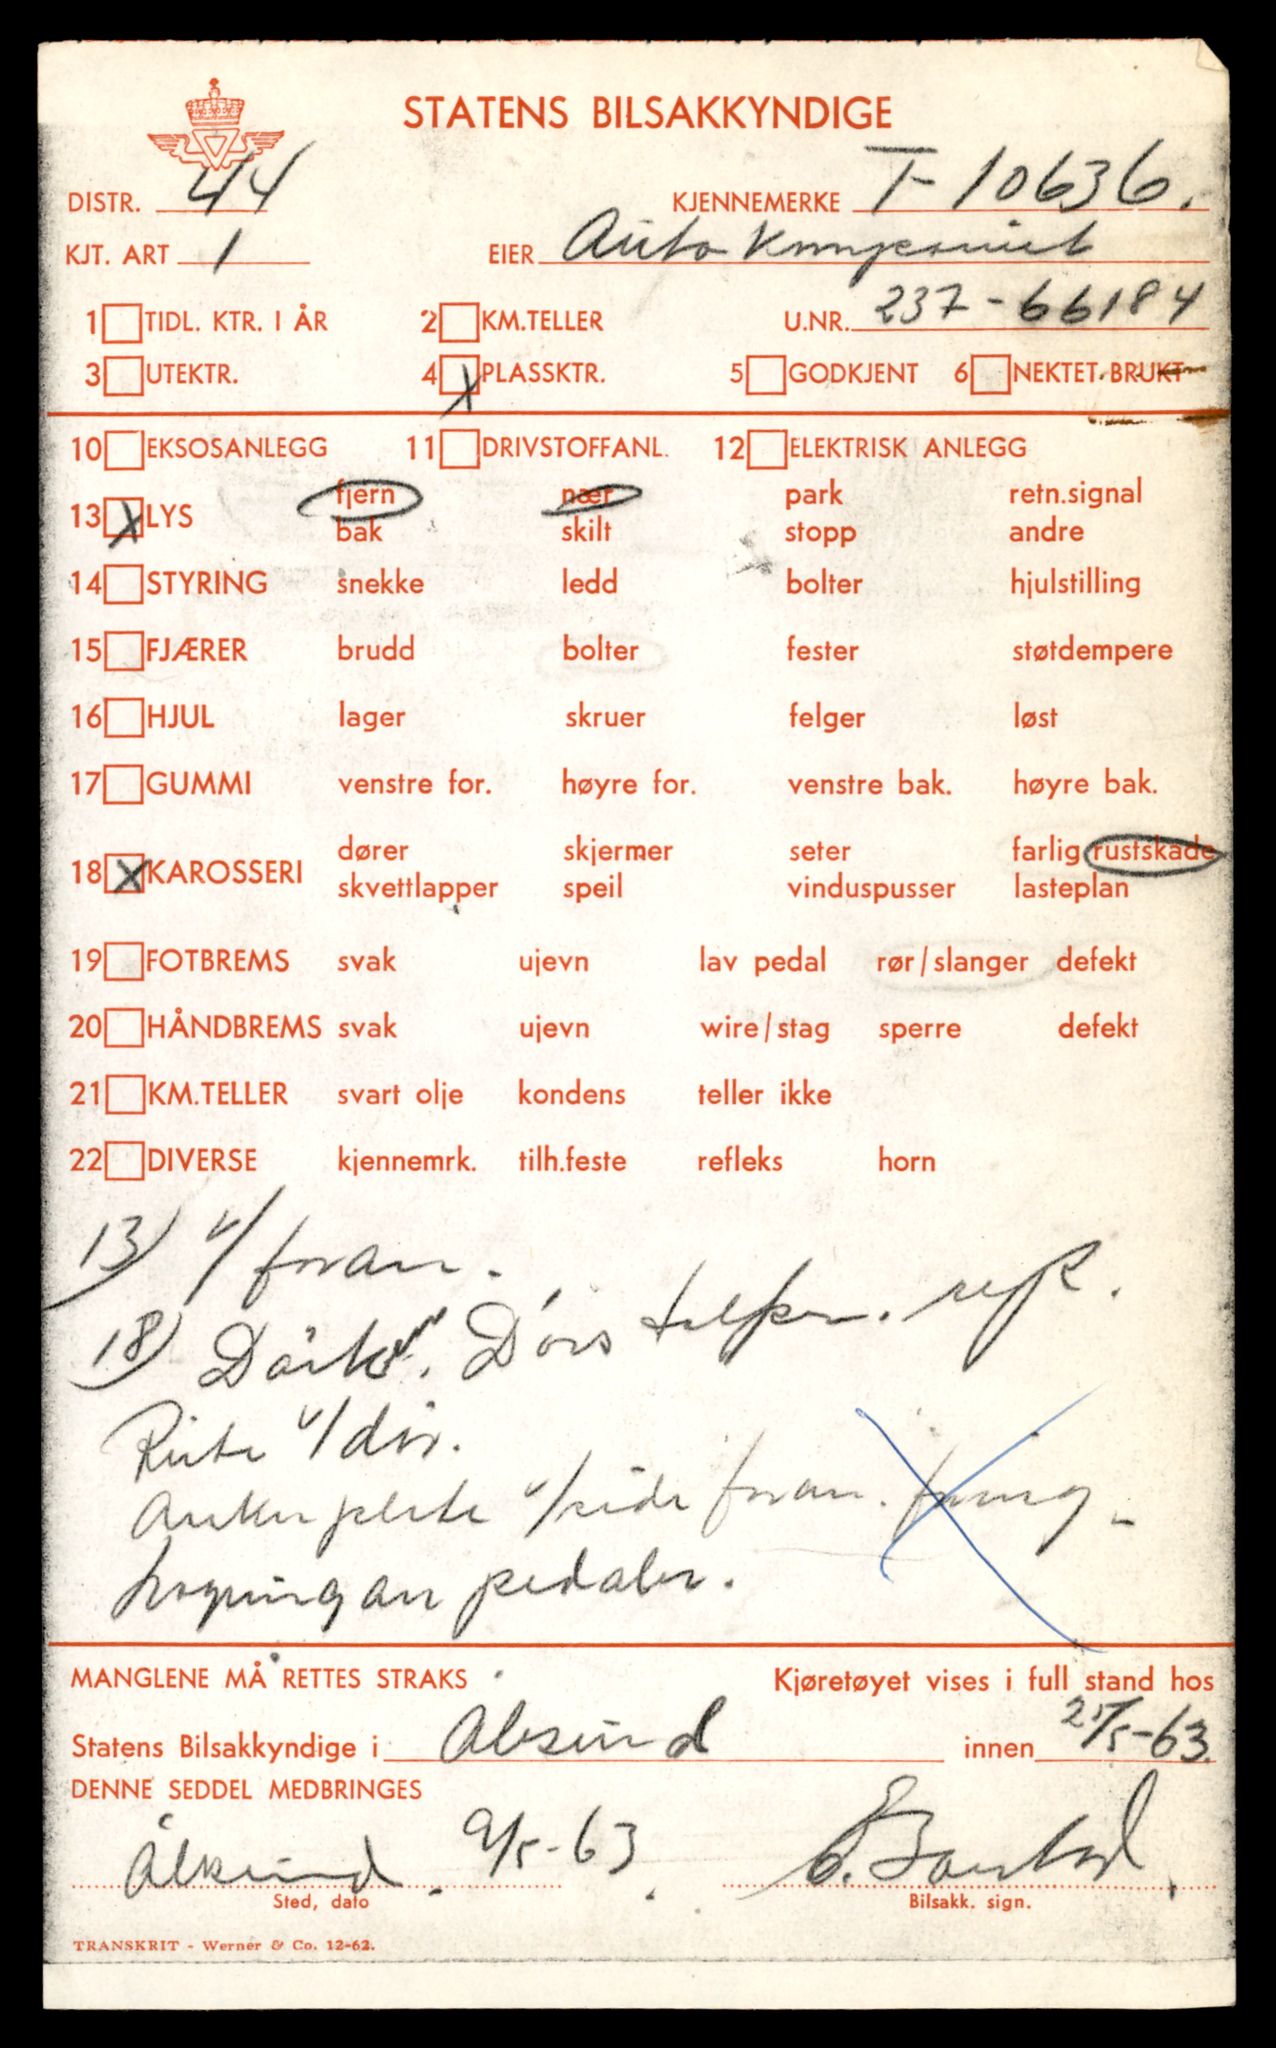 STATENS BILSAKKYNDIGE
DISTR. 44 KJENNEMERKE T-10636.
KJT. ART 1 EIER Auto Kompaniet
1 TIDL. KTR. I ÅR 2 KM.TELLER U.NR. 237-66184
3 UTEKTR. 4 X PLASSKTR. 5 GODKJENT 6 NEKTET BRUKT
10 EKSOSANLEGG 11 DRIVSTOFFANL. 12 ELEKTRISK ANLEGG
fjern nær park retn.signal
13 X LYS
bak skilt stopp andre
14 STYRING snekke ledd bolter hjulstilling
15 FJÆRER brudd bolter fester støtdempere
16 HJUL lager skruer felger løst
17 GUMMI venstre for. høyre for. venstre bak. høyre bak.
dører skjermer seter farlig rustskade
18 X KAROSSERI
skvettlapper speil vinduspusser lasteplan
19 FOTBREMS svak ujevn lav pedal rør/slanger defekt
20 HÅNDBREMS svak ujevn wire/stag sperre defekt
21 KM.TELLER svart olje kondens teller ikke
22 DIVERSE kjennemrk. tilh.feste refleks horn
13) v/foran.
18) Dörk. Dörs
Rute v/dör.
Anker plate v/side foran.
pedaler.
MANGLENE MÅ RETTES STRAKS Kjøretøyet vises i full stand hos
Statens Bilsakkyndige i Ålesund innen 25/5-63.
DENNE SEDDEL MEDBRINGES
Ålesund. 9/5-63.
Sted, dato Bilsakk. sign.
TRANSKRIT - Werner & Co. 12-62.